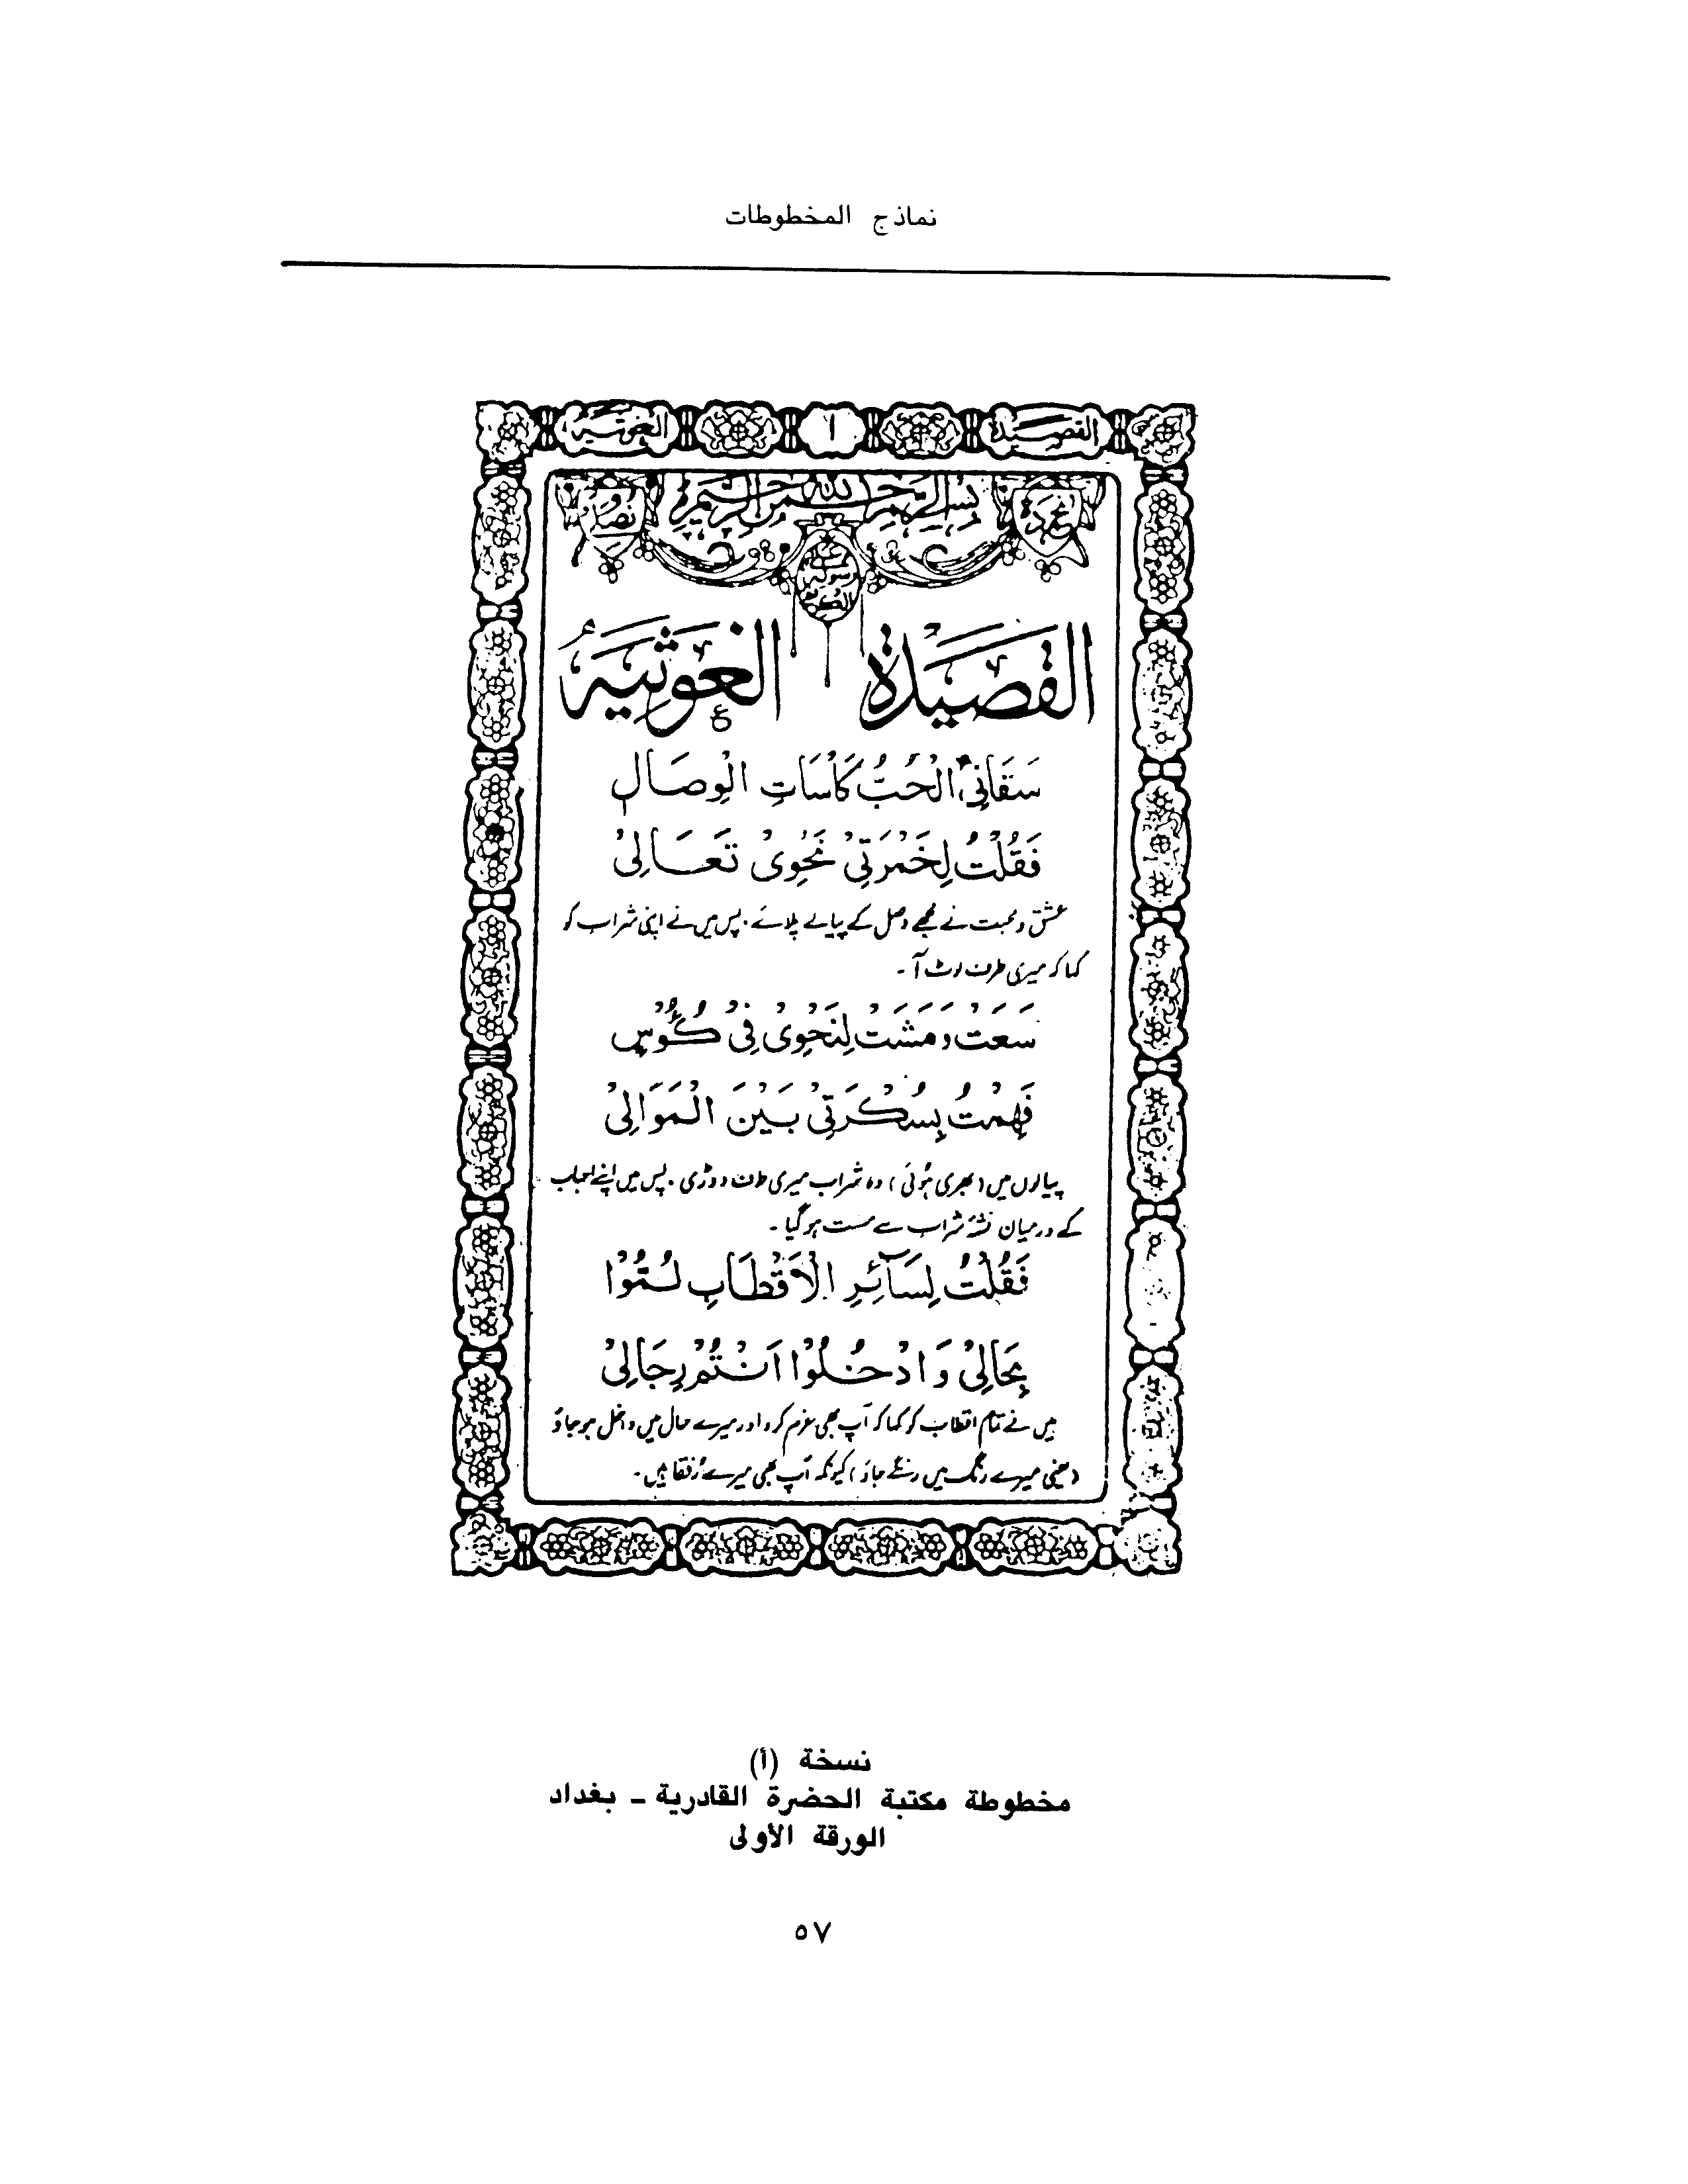 نماذج المخطوطات
القصيدة ا الغوثية
بسم الله الرحمن الرحيم
نحمدہ ونصلی
علی رسولہ الکریم
القصيدة الغوثية
سَقَانِي الْحُبُّ كَاْسَاتِ الْوِصَالِ
فَقُلْتُ لِخَمْرَتِيْ نَحْوِيْ تَعَالِيْ
عشق و محبت نے مجھے وصل کے پیالے پلائے۔ پس میں نے اپنی شراب کو
کہا کہ میری طرف لوٹ آ۔
سَعَتْ وَمَشَتْ لِنَحْوِيْ فِيْ كُؤُوْسٍ
فَهِمْتُ بِسُكْرَتِيْ بَيْنَ الْمَوَالِيْ
پیالوں میں (بھری ہوئی) وہ شراب میری طرف دوڑی۔ پس میں اپنے احباب
کے درمیان نشۂ شراب سے مست ہو گیا۔
فَقُلْتُ لِسَآئِرِ الْاَقْطَابِ لُمُّوْا
بِحَالِيْ وَادْخُلُوْا اَنْتُمْ رِجَالِيْ
میں نے تمام اقطاب کو کہا کہ آپ بھی عزم کرو اور میرے حال میں داخل ہو جاؤ
(یعنی میرے رنگ میں رنگے جاؤ) کیونکہ آپ بھی میرے رُفقا ہیں۔
نسخة (أ)
مخطوطة مكتبة الحضرة القادرية ـ بغداد
الورقة الأولى
٥٧